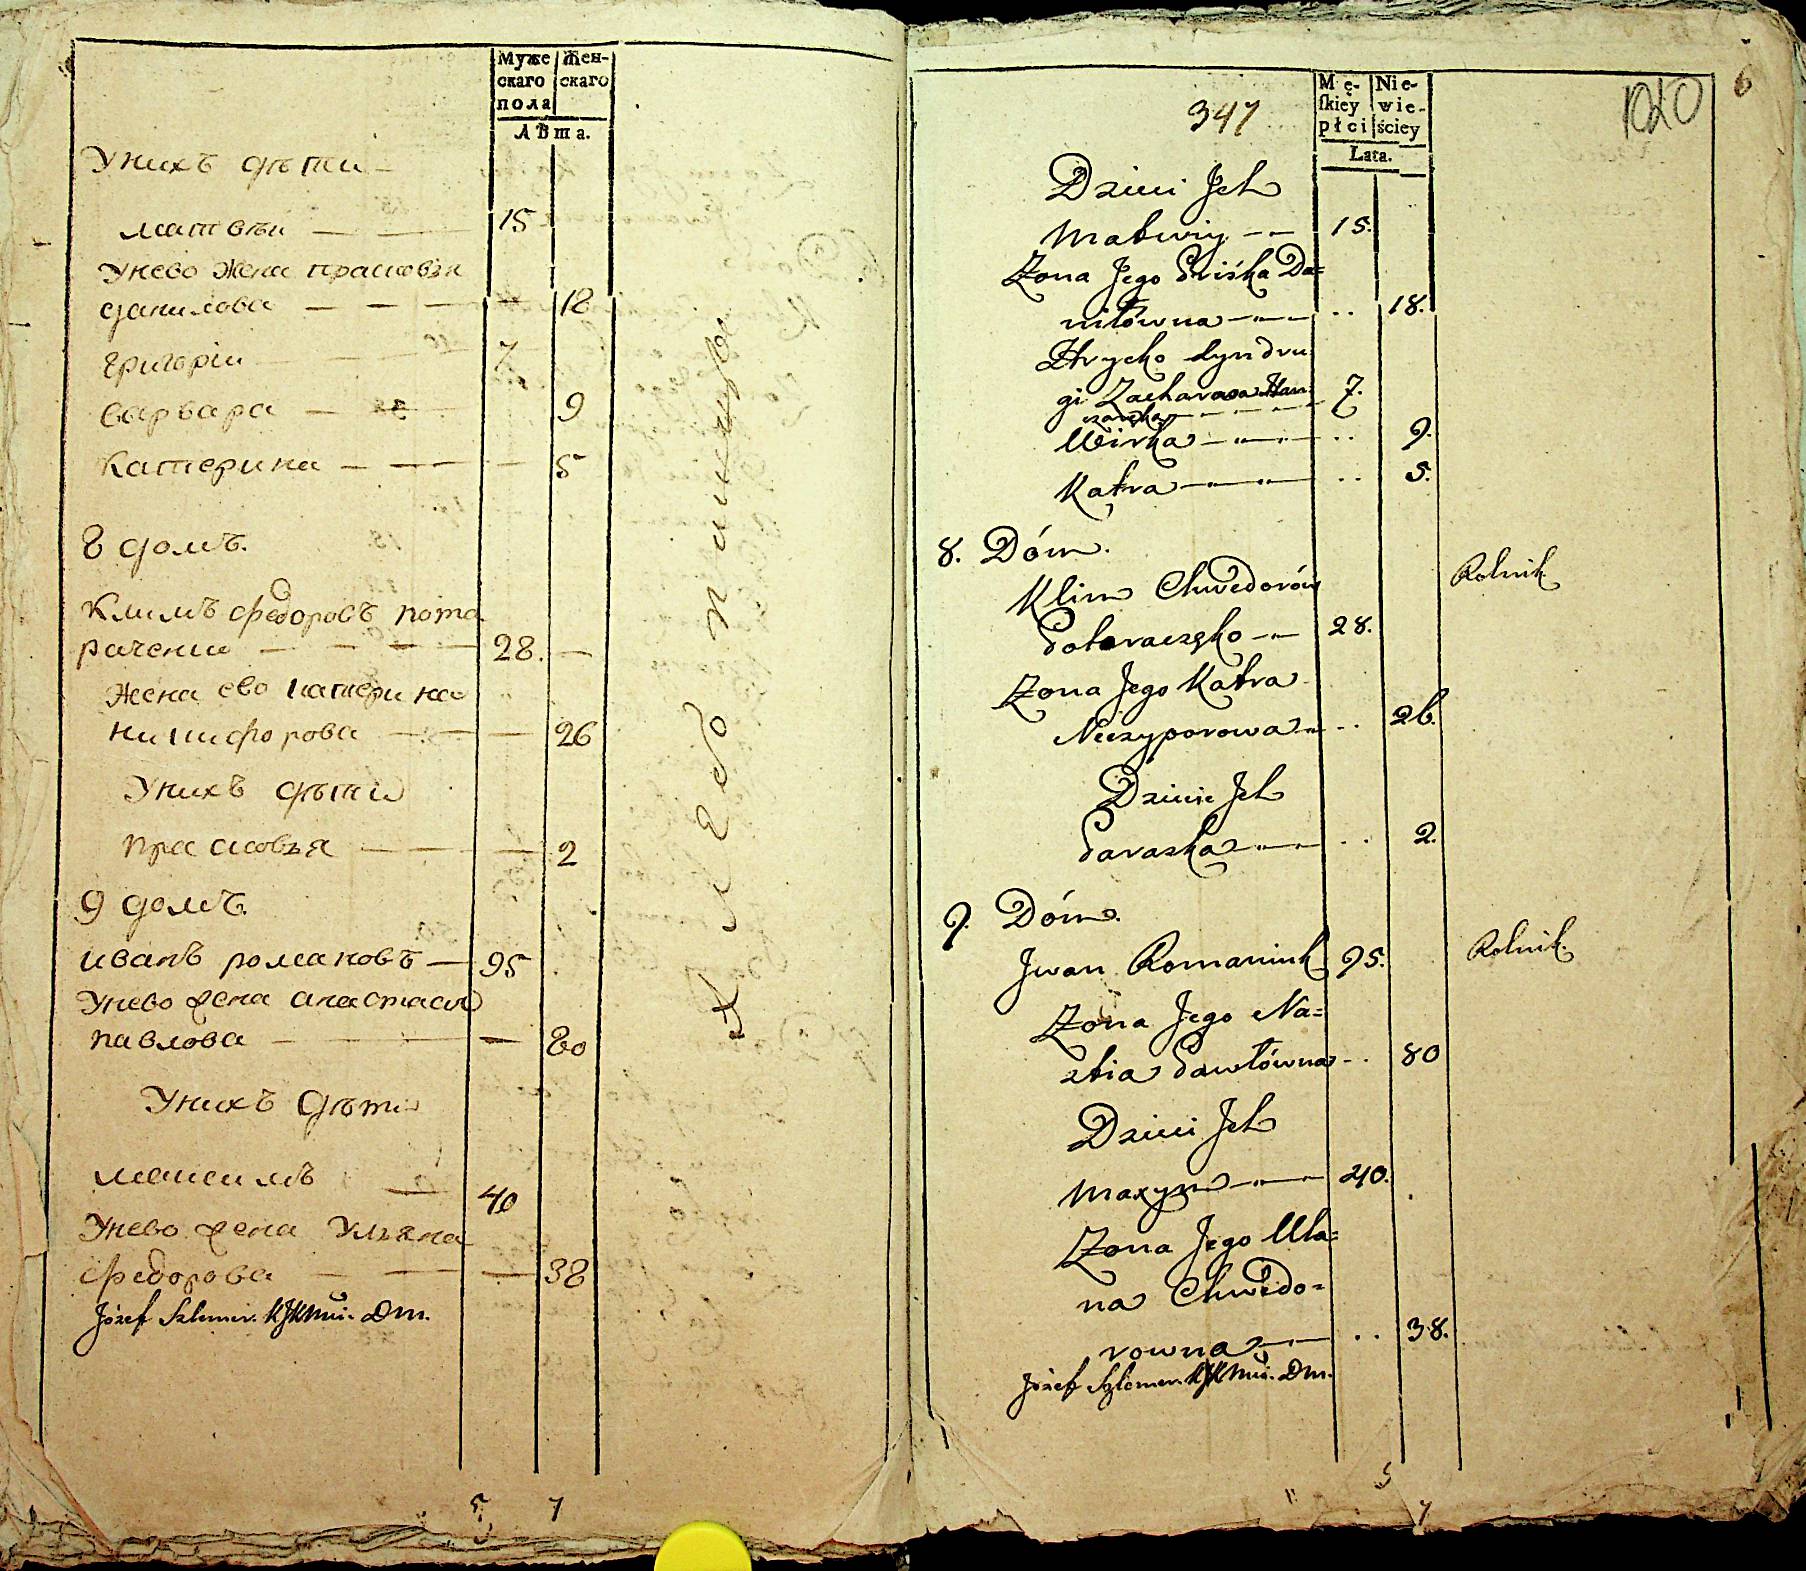 Муже
скаго
пола
Жен-
скаго
Лѣта.
Унихъ дѣти
матвѣи 15
Унево жена прасковія
данилова 18
григоріи 7
варвара 9
катерина 5
8 домъ.
Климъ федоровъ пота
раченко 28.
жена ево катерина
никифорова 26
Унихъ дѣти
прасковъя 2
9 домъ.
иванъ романовъ 95
Унево жена анастасия
павлова 80
Унихъ дѣти
максимъ 40
Унево жена Ульяна
федорова 38
Józef Szlemer. Dm.
5 7
Хлебопашцы
347
Mę-
skiey
płci
Nie-
wie-
ściey
Lata.
6
Dzieci Jch
Matwiy 15.
Zona Jego Priśka Da=
niłówna .. 18.
Hrycko Syn dru
gi Zacharasa 7.
Wirka .. 9.
Katra .. 5.
8. Dóm.
Klim Chwedorów Rolnik
Potaraczęko 28.
Zona Jego Katra
Niczyporowa .. 26.
Dziecie Jch
Paraska .. 2.
9. Dóm.
Jwan Romaniuk 95. Rolnik.
Zona Jego Na=
stia Pawłówna .. 80
Dzieci Jch
Maxym 40.
Zona Jego Ula=
na Chwedo=
rowna .. 38.
Józef Szlemer. Dm.
5
7